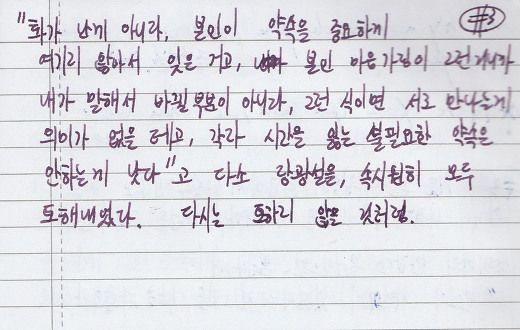 "화가 난게 아니라, 본인이 약속을 중요하게 #3
여기지 않아서 잊은 거고, 본인 마음가짐이 그런거니까
내가 말해서 바뀔 부분이 아니라, 그런 식이면 서로 만나는게
의미가 없을 테고, 각자 시간을 잃는 불필요한 약속은
안하는게 낫다"고 다소 장광설을, 속시원히 모두
토해내었다. 다시는 토하지 않을 것처럼.